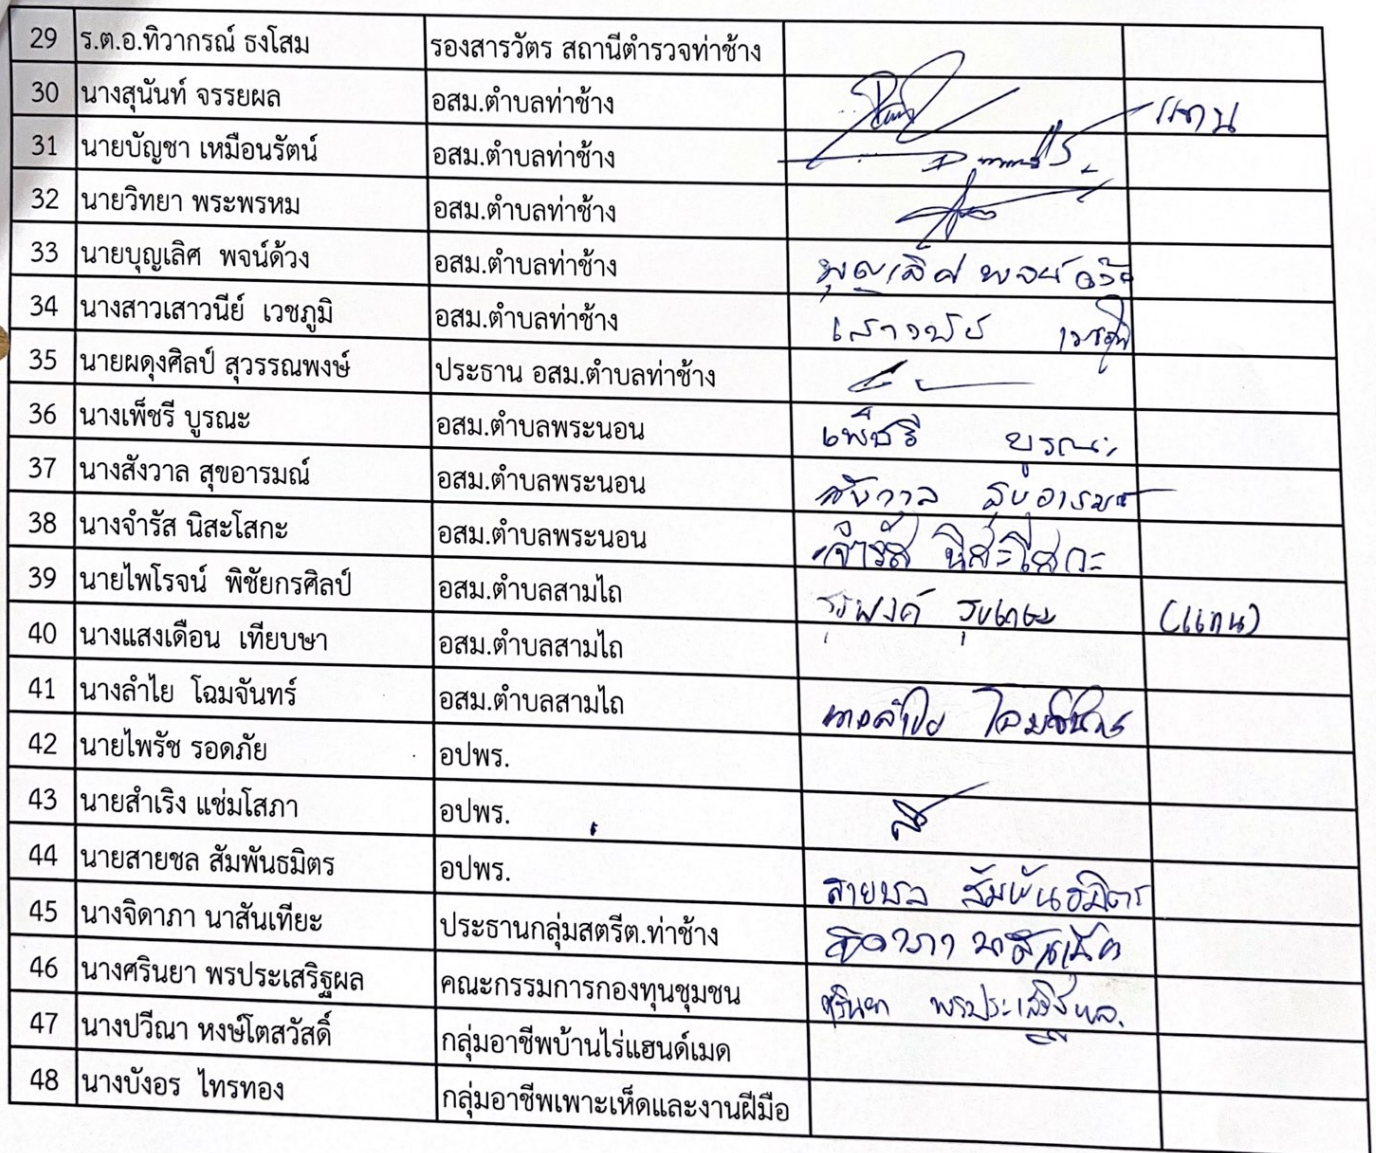 29 ร.ต.อ.ทิวากรณ์ ธงโสม รองสารวัตร สถานีตำรวจท่าช้าง
30 นางสุนันท์ จรรยผล อสม.ตำบลท่าช้าง แทน
31 นายบัญชา เหมือนรัตน์ อสม.ตำบลท่าช้าง
32 นายวิทยา พระพรหม อสม.ตำบลท่าช้าง
33 นายบุญเลิศ พจน์ด้วง อสม.ตำบลท่าช้าง บุญเลิศ พจน์ด้วง
34 นางสาวเสาวนีย์ เวชภูมิ อสม.ตำบลท่าช้าง เสาวนีย์ เวชภูมิ
35 นายผดุงศิลป์ สุวรรณพงษ์ ประธาน อสม.ตำบลท่าช้าง
36 นางเพ็ชรี บูรณะ อสม.ตำบลพระนอน เพ็ชรี บูรณะ
37 นางสังวาล สุขอารมณ์ อสม.ตำบลพระนอน สังวาล สุขอารมณ์
38 นางจำรัส นิสะโสกะ อสม.ตำบลพระนอน จำรัส นิสะโสกะ
39 นายไพโรจน์ พิชัยกรศิลป์ อสม.ตำบลสามไถ (แทน)
40 นางแสงเดือน เทียบษา อสม.ตำบลสามไถ
41 นางลำไย โฉมจันทร์ อสม.ตำบลสามไถ นางลำไย โฉมจันทร์
42 นายไพรัช รอดภัย อปพร.
43 นายสำเริง แช่มโสภา อปพร.
44 นายสายชล สัมพันธมิตร อปพร. สายชล สัมพันธมิตร
45 นางจิดาภา นาสันเทียะ ประธานกลุ่มสตรีต.ท่าช้าง จิดาภา นาสันเทียะ
46 นางศรินยา พรประเสริฐผล คณะกรรมการกองทุนชุมชน ศรินยา พรประเสริฐผล
47 นางปวีณา หงษ์โตสวัสดิ์ กลุ่มอาชีพบ้านไร่แฮนด์เมด
48 นางบังอร ไทรทอง กลุ่มอาชีพเพาะเห็ดและงานฝีมือ